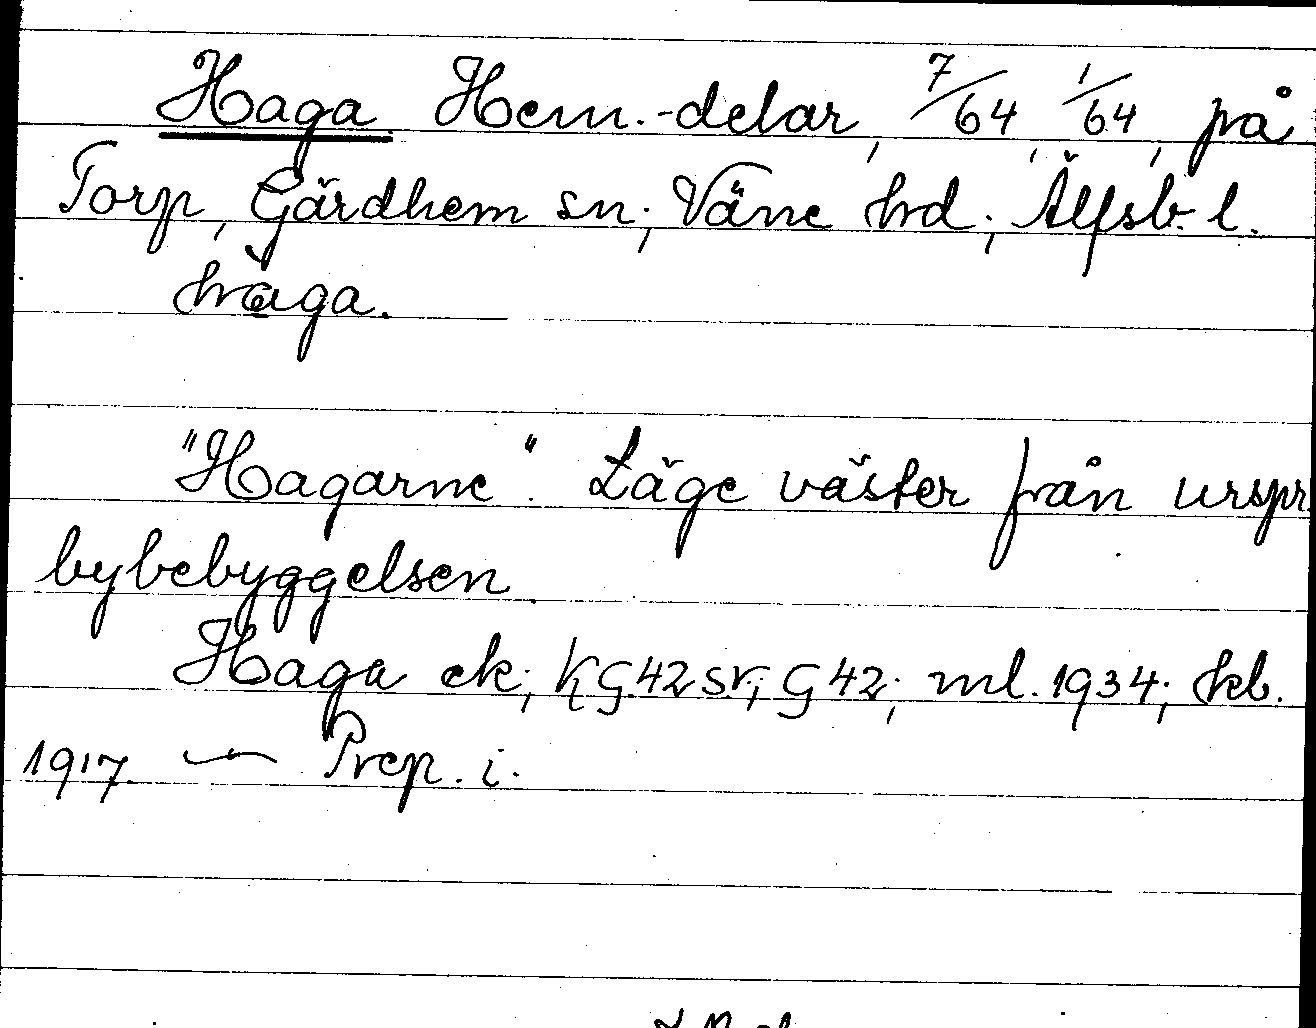 Haga Hem.-delar, 7/64, 1/64, på
Torp, Gärdhem sn; Väne hd; Älfsb. l.
hàga.
"Hagarne". Läge väster från urspr.
bybebyggelsen.
Haga ek; KG42sv; G42; ml. 1934; kb.
1917. — Prep. i.